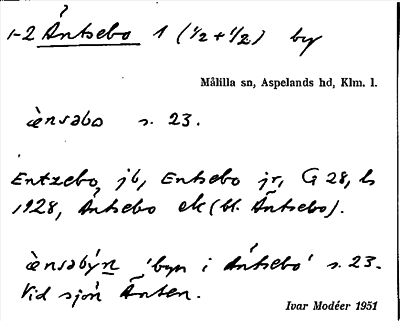 1-2 Åntsebo 1 (1/2 + 1/2) by
Målilla sn, Aspelands hd, Klm. l.
ænsəbo s. 23.
Entzebo jb, Entsebo jr, G 28, ls
1928, Äntsebo ek (bl. Äntsebo).
ænsəbýn 'byn i Äntsebo' s. 23.
Vid sjön Änten.
Ivar Modéer 1951